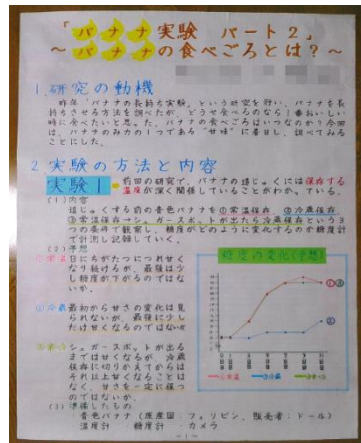 「バナナ実験 パート2」
～バナナの食べごろとは？～
1.研究の動機
昨年「バナナの長持ち実験」という研究を行い、バナナを長
持ちさせる方法を調べたが、どうせ食べるのなら1番おいしい
時に食べたいと思った。バナナの食べごろはいつなのか？今回
は、バナナのみ力の1つである"甘味"に着目し、調べてみる
ことにした。
2.実験の方法と内容
実験1 前回の研究で、バナナの追じゅくには保存する
温度が深く関係していることがわかっている。
(1)内容
追じゅくする前の青色バナナを①常温保存、②冷蔵保存、
③常温保存→シュガースポットが出たら冷蔵保存という3
つの条件で観察し、糖度がどのように変化するのか糖度計
で計測し記録していく。
(2)予想
①常温 日にちがたつにつれ甘く
なり続けるが、最後は少
し糖度が下がるのではな
いか。
②冷蔵 最初から甘さの変化は見
られないが、最後に少し
だけ甘くなるのではないか
シュガースポットが出る
までは甘くなるが、冷蔵
保存に切りかえてからは
それ以上甘くなることは
なく、甘さを一定に保つ
のではないか。
糖度の変化(予想)
①
③
②
(3)準備したもの
・青色バナナ(原産国：フィリピン、販売者：ドール)
・温度計 ・糖度計 ・カメラ
-1-